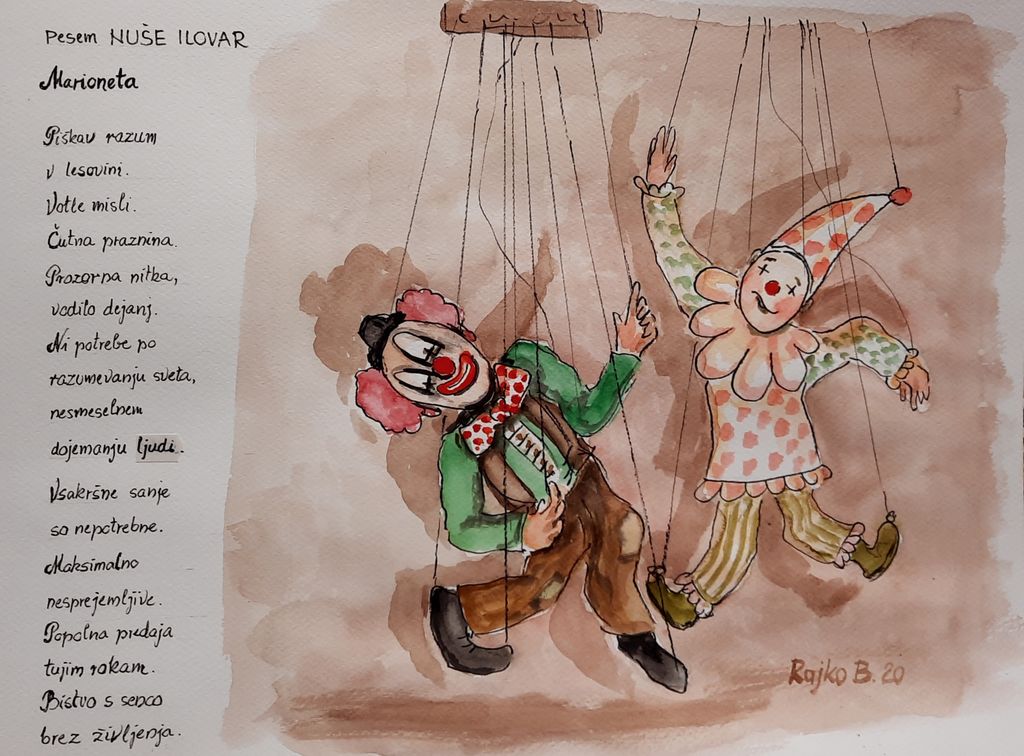 Pesem NUŠE ILOVAR
Marioneta
Piškav razum
v lesovini.
Votle misli.
Čutna praznina.
Prozorna nitka,
vodilo dejanj.
Ni potrebe po
razumevanju sveta,
nesmeselnem
dojemanju ljudi.
Vsakršne sanje
so nepotrebne.
Maksimalno
nesprejemljive.
Popolna predaja
tujim rokam.
Bistvo s senco
brez življenja.
Rajko B. 20